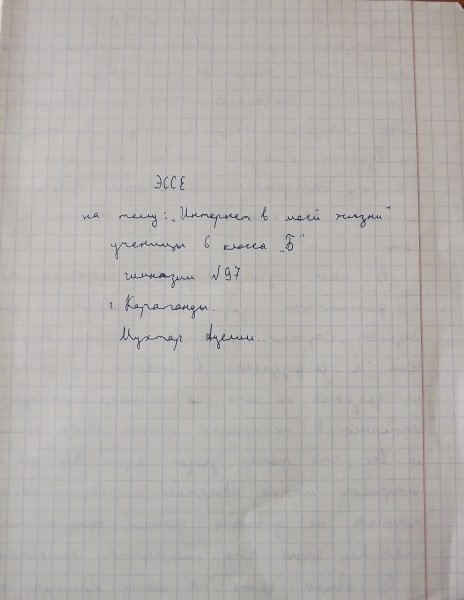 ЭССЕ
на тему: „Интернет в моей жизни"
ученицы 6 класса „Б"
гимназии №97
г. Караганды.
Мухтар Аделии.